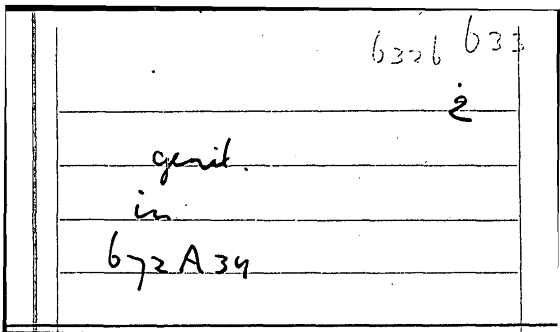 632b 633
genit.
in
672 A 34